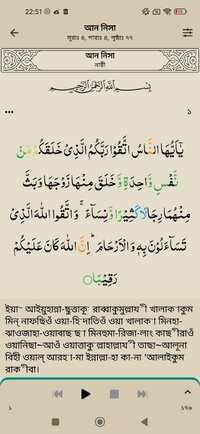 22:51
আন নিসা
সূরাঃ ৪, পারাঃ ৪, পৃষ্ঠাঃ ৭৭
আন নিসা
নারী
بِسْمِ اللهِ الرَّحْمٰنِ الرَّحِيْمِ
১
يٰۤاَيُّهَا النَّاسُ اتَّقُوْا رَبَّكُمُ الَّذِيْ خَلَقَكُمْ مِّنْ
نَّفْسٍ وَّاحِدَةٍ وَّخَلَقَ مِنْهَا زَوْجَهَا وَبَثَّ
مِنْهُمَا رِجَالًا كَثِيْرًا وَّنِسَآءً ۚ وَاتَّقُوا اللهَ الَّذِيْ
تَسَآءَلُوْنَ بِهٖ وَالْاَرْحَامَ ؕ اِنَّ اللهَ كَانَ عَلَيْكُمْ
رَقِيْبًا
ইয়াআইয়ুহান্না-ছুত্তাকূ রাব্বাকুমুল্লাযী খালাকাকুম
মিন নাফছিওঁ ওয়া-হি দাতিওঁ ওয়া খালাকা মিনহা-
ঝাওজাহা-ওয়াবাছ ছা মিনহুমা-রিজা-লাং কাছীরাওঁ
ওয়ানিছাআওঁ ওয়াত্তাকু ল্লাহাল্লাযী তাছাআলূনা
বিহী ওয়াল আরহামা ইন্নাল্লা-হা কা-না ‘আলাইকুম
রাকীবা।
১
১৭৬